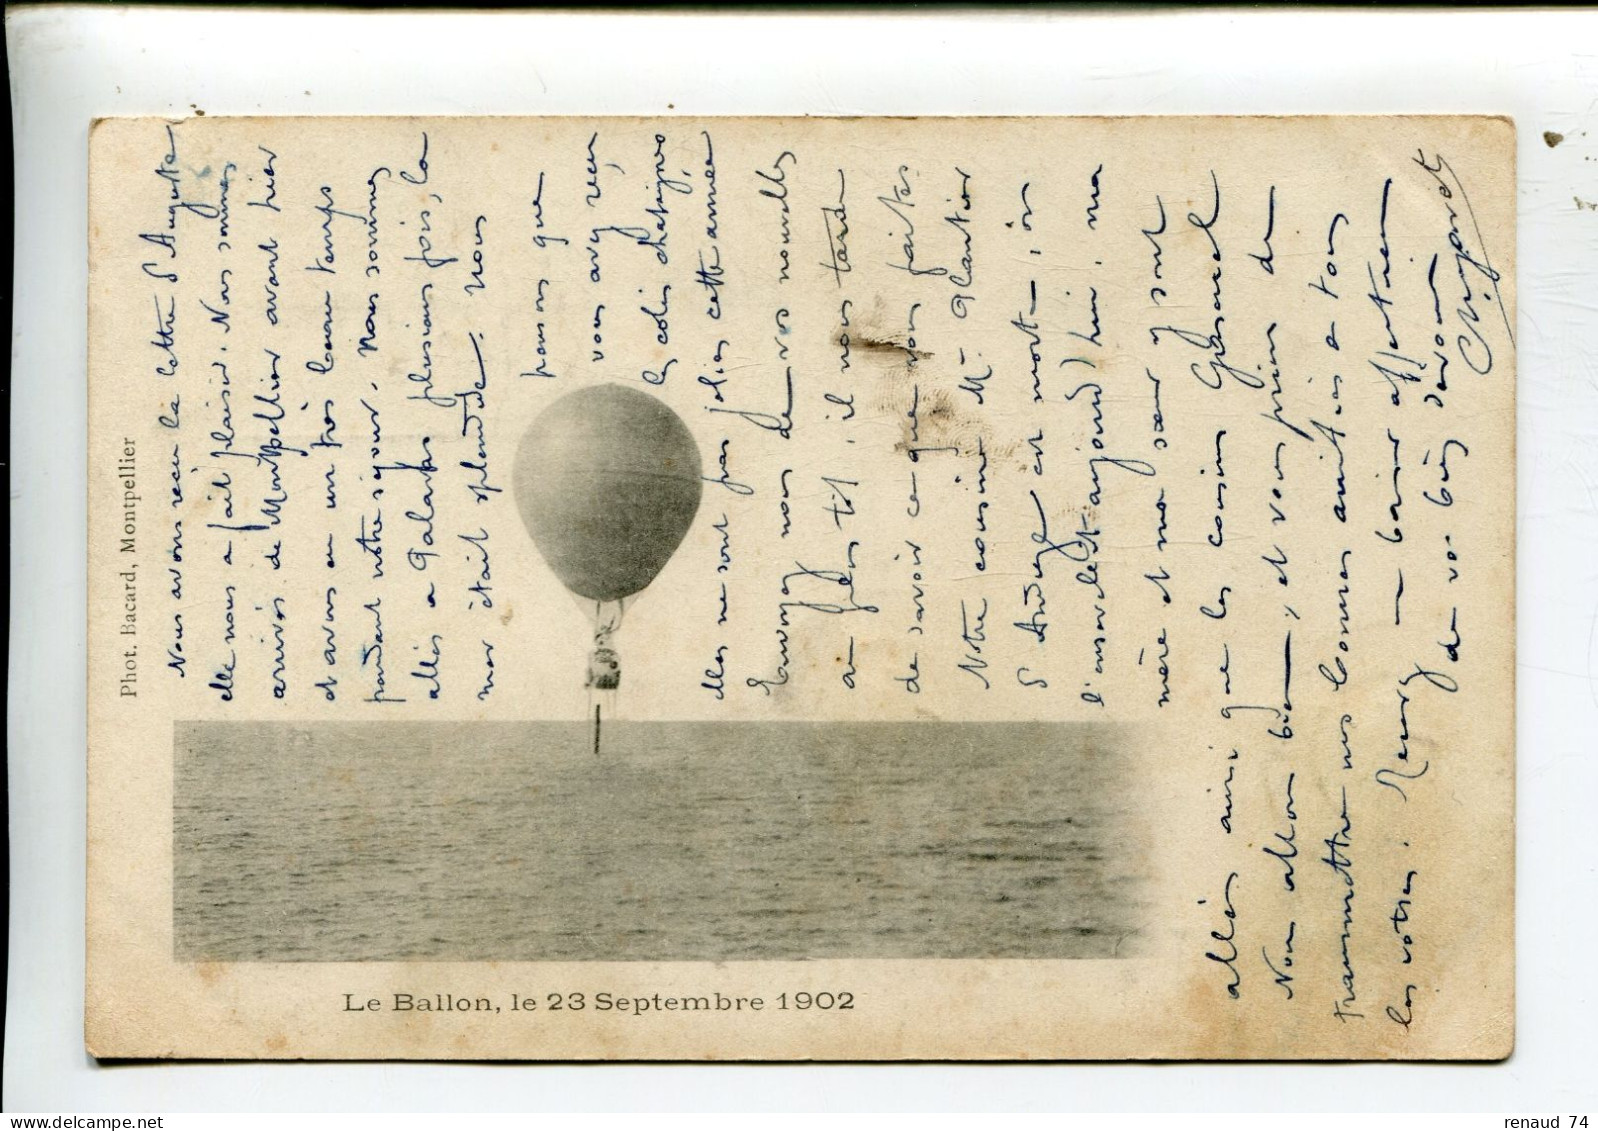 Phot. Bacard, Montpellier
Nous avons reçu la lettre d'Auguste
elle nous a fait plaisir. Nous sommes
arrivés de Montpellier avant hier
et avons eu un très beau temps
pendant notre séjour. Nous sommes
allés a Palavas plusieurs fois, la
mer était splendide. Nous
pensons que
vous avez reçu
les colis chataignes
elles ne sont pas jolies cette année
Envoyez nous de vos nouvelles
au plus tôt, il nous tarde
de savoir ce que vous faites
Notre cousine Mme Plantier
St André est morte, on
l'ensevelit aujourd'hui, ma
mère et ma sœur y sont
allées ainsi que les cousins
Nous allons bien, et vous prions de
transmettre nos bonnes amitiés a tous
les votres. Recevez un baiser affectueux
de vo bien
Le Ballon, le 23 Septembre 1902
renaud 74